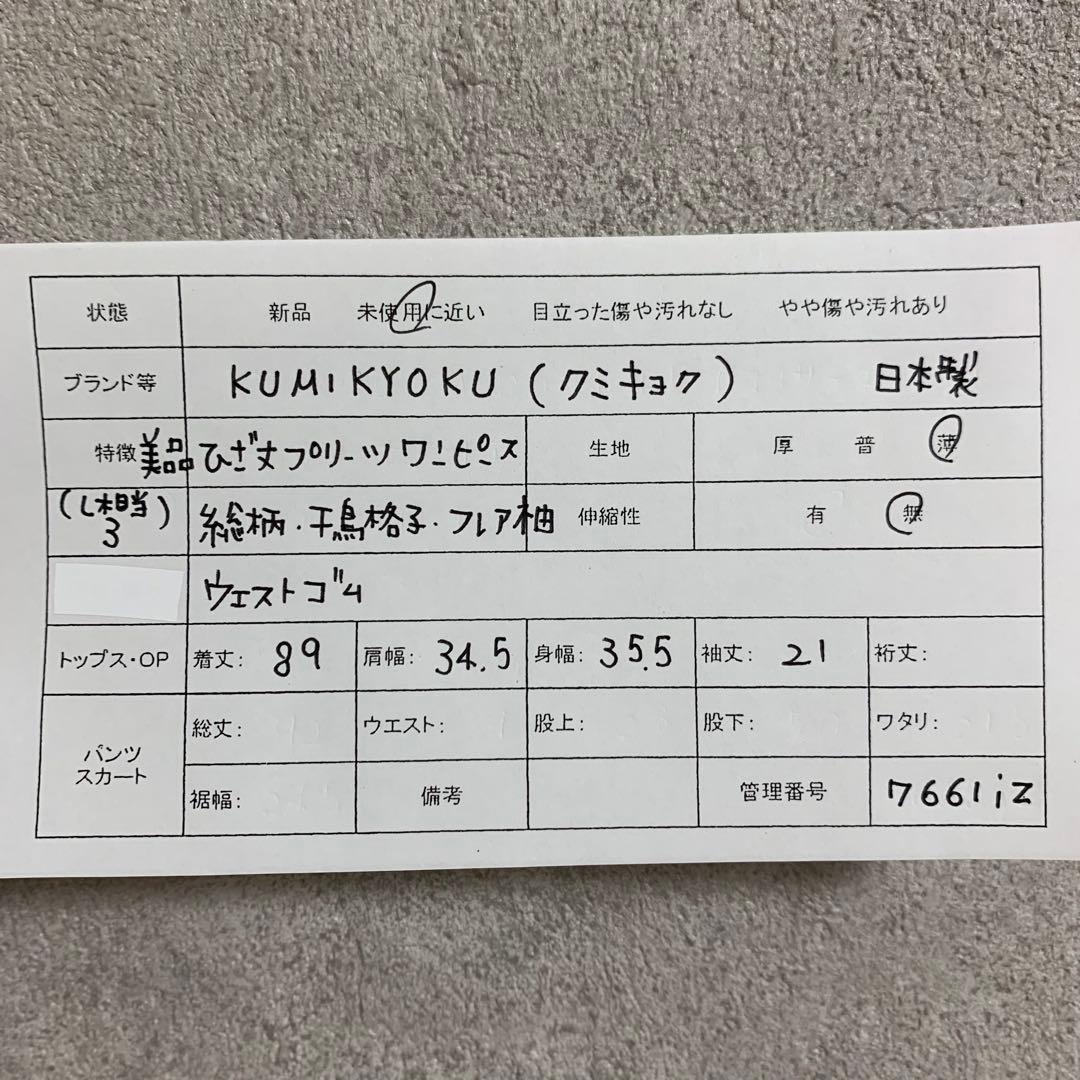 状態 新品 未使用に近い 目立った傷や汚れなし やや傷や汚れあり
ブランド等 KUMIKYOKU (クミキョク) 日本製
特徴 美品 ひざ丈プリーツワンピース 生地 厚 普 薄
(L相当) 3 総柄・千鳥格子・フレア袖 伸縮性 有 無
ウエストゴム
トップス・OP 着丈: 89 肩幅: 34.5 身幅: 35.5 袖丈: 21 裄丈:
パンツ スカート 総丈: ウエスト: 股上: 股下: ワタリ:
裾幅: 備考 管理番号 7661iz